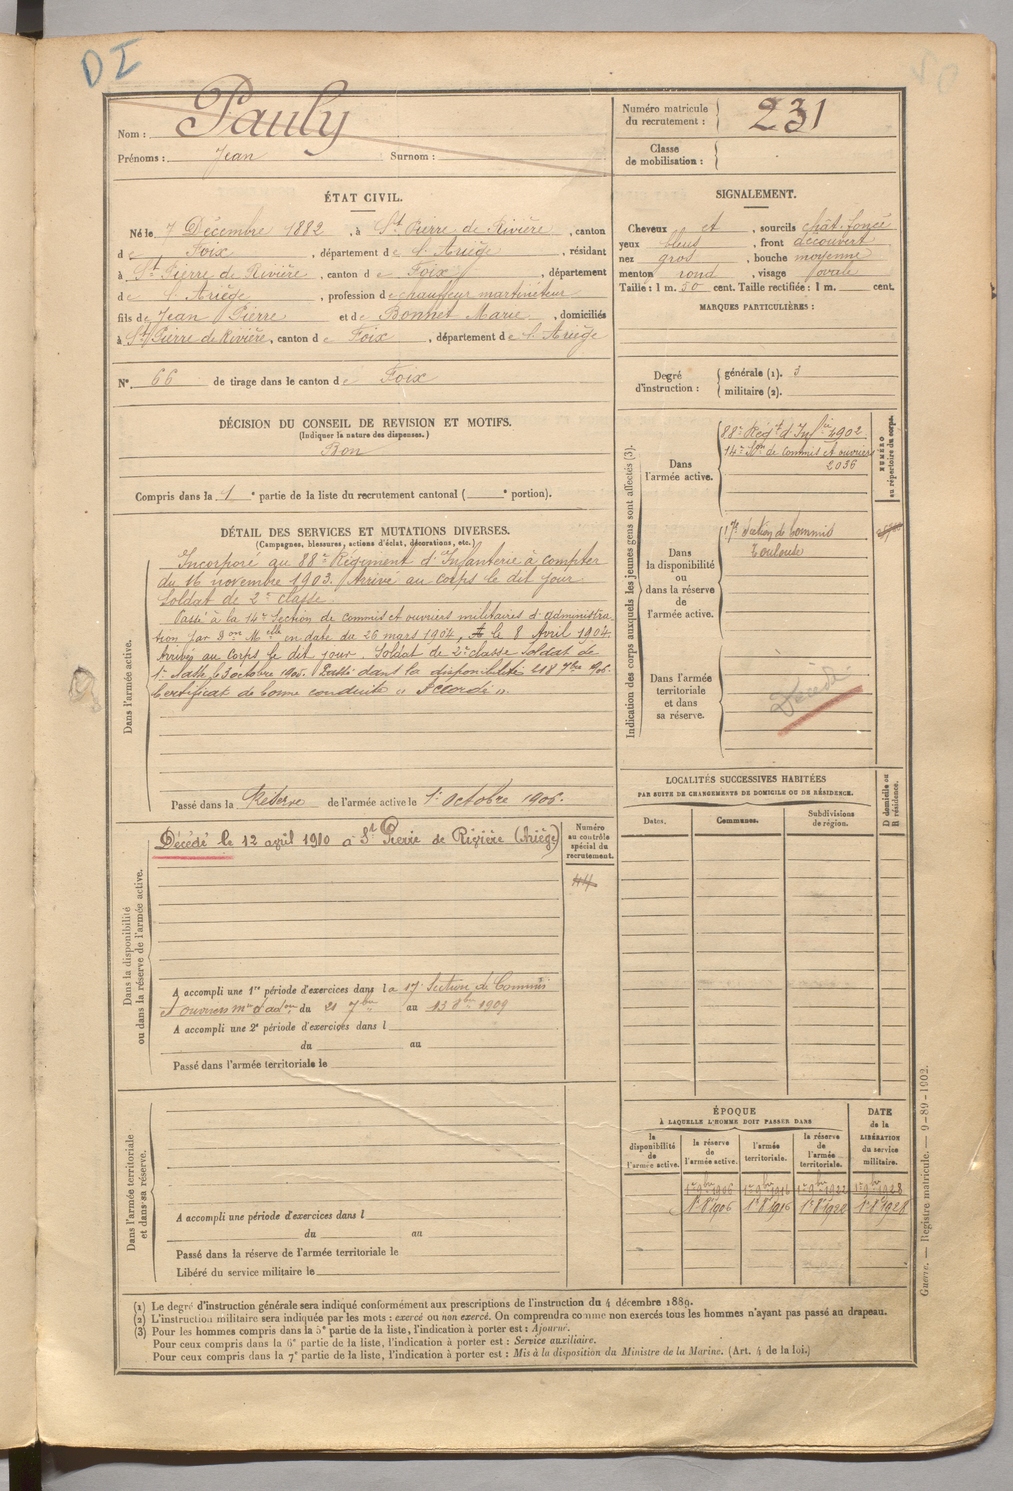 DI
Nom : Pauly
Prénoms : Jean Surnom :
Numéro matricule
du recrutement : 231
Classe
de mobilisation :
ÉTAT CIVIL.
Né le 7 Décembre 1882, à St Pierre de Rivière, canton
de Foix, département de l'Ariège, résidant
à St Pierre de Rivière, canton de Foix, département
de l'Ariège, profession de chauffeur martineteur
fils de Jean Pierre et de Bonnet Marie, domiciliés
à St Pierre de Rivière, canton de Foix, département de l'Ariège
N° 66 de tirage dans le canton de Foix
SIGNALEMENT.
Cheveux et, sourcils chât. foncé
yeux bleus, front découvert
nez gros, bouche moyenne
menton rond, visage ovale
Taille : 1 m. 50 cent. Taille rectifiée : 1 m. cent.
MARQUES PARTICULIÈRES :
Degré
d'instruction :
générale (1). 3
militaire (2).
DÉCISION DU CONSEIL DE REVISION ET MOTIFS.
(Indiquer la nature des dispenses.)
Bon
Compris dans la 1e partie de la liste du recrutement cantonal ( e portion).
DÉTAIL DES SERVICES ET MUTATIONS DIVERSES.
(Campagnes, blessures, actions d'éclat, décorations, etc.)
Dans l'armée active.
Incorporé au 88e Régiment d'Infanterie à compter
du 16 novembre 1903. Arrivé au corps le dit jour
Soldat de 2e classe
Passé à la 14e Section de commis et ouvriers militaires d'administra
tion par Don Mlle en date du 26 mars 1904, le 8 Avril 1904.
Arrivé au corps le dit jour. Soldat de 2e classe Soldat de
1e classe le 3 octobre 1905. Passé dans la disponibilité le 18 7bre 1906.
Certificat de bonne conduite "Accordé".
Passé dans la Réserve de l'armée active le 1er octobre 1906.
Indication des corps auxquels les jeunes gens sont affectés (3).
Dans
l'armée active.
88e Régt d'Infie 4902
14e Son de commis et ouvriers
2036
NUMÉRO
au répertoire du corps.
Dans
la disponibilité
ou
dans la réserve
de
l'armée active.
17e section de Commis
Toulouse
Dans l'armée
territoriale
et dans
sa réserve.
Décédé
Dans la disponibilité
ou dans la réserve de l'armée active.
Décédé le 12 avril 1910 à St Pierre de Rivière (Ariège)
Numéro
au contrôle
spécial du
recrutement.
44
A accompli une 1re période d'exercices dans la 17e Section de Commis
et ouvriers mres d'adon du 21 7bre au 13 8bre 1909
A accompli une 2e période d'exercices dans l
du au
Passé dans l'armée territoriale le
LOCALITÉS SUCCESSIVES HABITÉES
PAR SUITE DE CHANGEMENTS DE DOMICILE OU DE RÉSIDENCE.
Dates. Communes. Subdivisions
de région.
D domicile ou
R résidence.
Dans l'armée territoriale
et dans sa réserve.
A accompli une période d'exercices dans l
du au
Passé dans la réserve de l'armée territoriale le
Libéré du service militaire le
ÉPOQUE
À LAQUELLE L'HOMME DOIT PASSER DANS
la
disponibilité
de
l'armée active.
la réserve
de
l'armée active.
l'armée
territoriale.
la réserve
de
l'armée
territoriale.
DATE
de la
LIBÉRATION
du service
militaire.
1er 9bre 1906 1er 9bre 1916 1er 9bre 1922 1er 9bre 1928
1er 8bre 1906 1er 8bre 1916 1er 8bre 1922 1er 8bre 1928
Guerre. — Registre matricule. — 9-89-1902.
(1) Le degré d'instruction générale sera indiqué conformément aux prescriptions de l'instruction du 4 décembre 1889.
(2) L'instruction militaire sera indiquée par les mots : exercé ou non exercé. On comprendra comme non exercés tous les hommes n'ayant pas passé au drapeau.
(3) Pour les hommes compris dans la 5e partie de la liste, l'indication à porter est : Ajourné.
Pour ceux compris dans la 6e partie de la liste, l'indication à porter est : Service auxiliaire.
Pour ceux compris dans la 7e partie de la liste, l'indication à porter est : Mis à la disposition du Ministre de la Marine. (Art. 4 de la loi.)